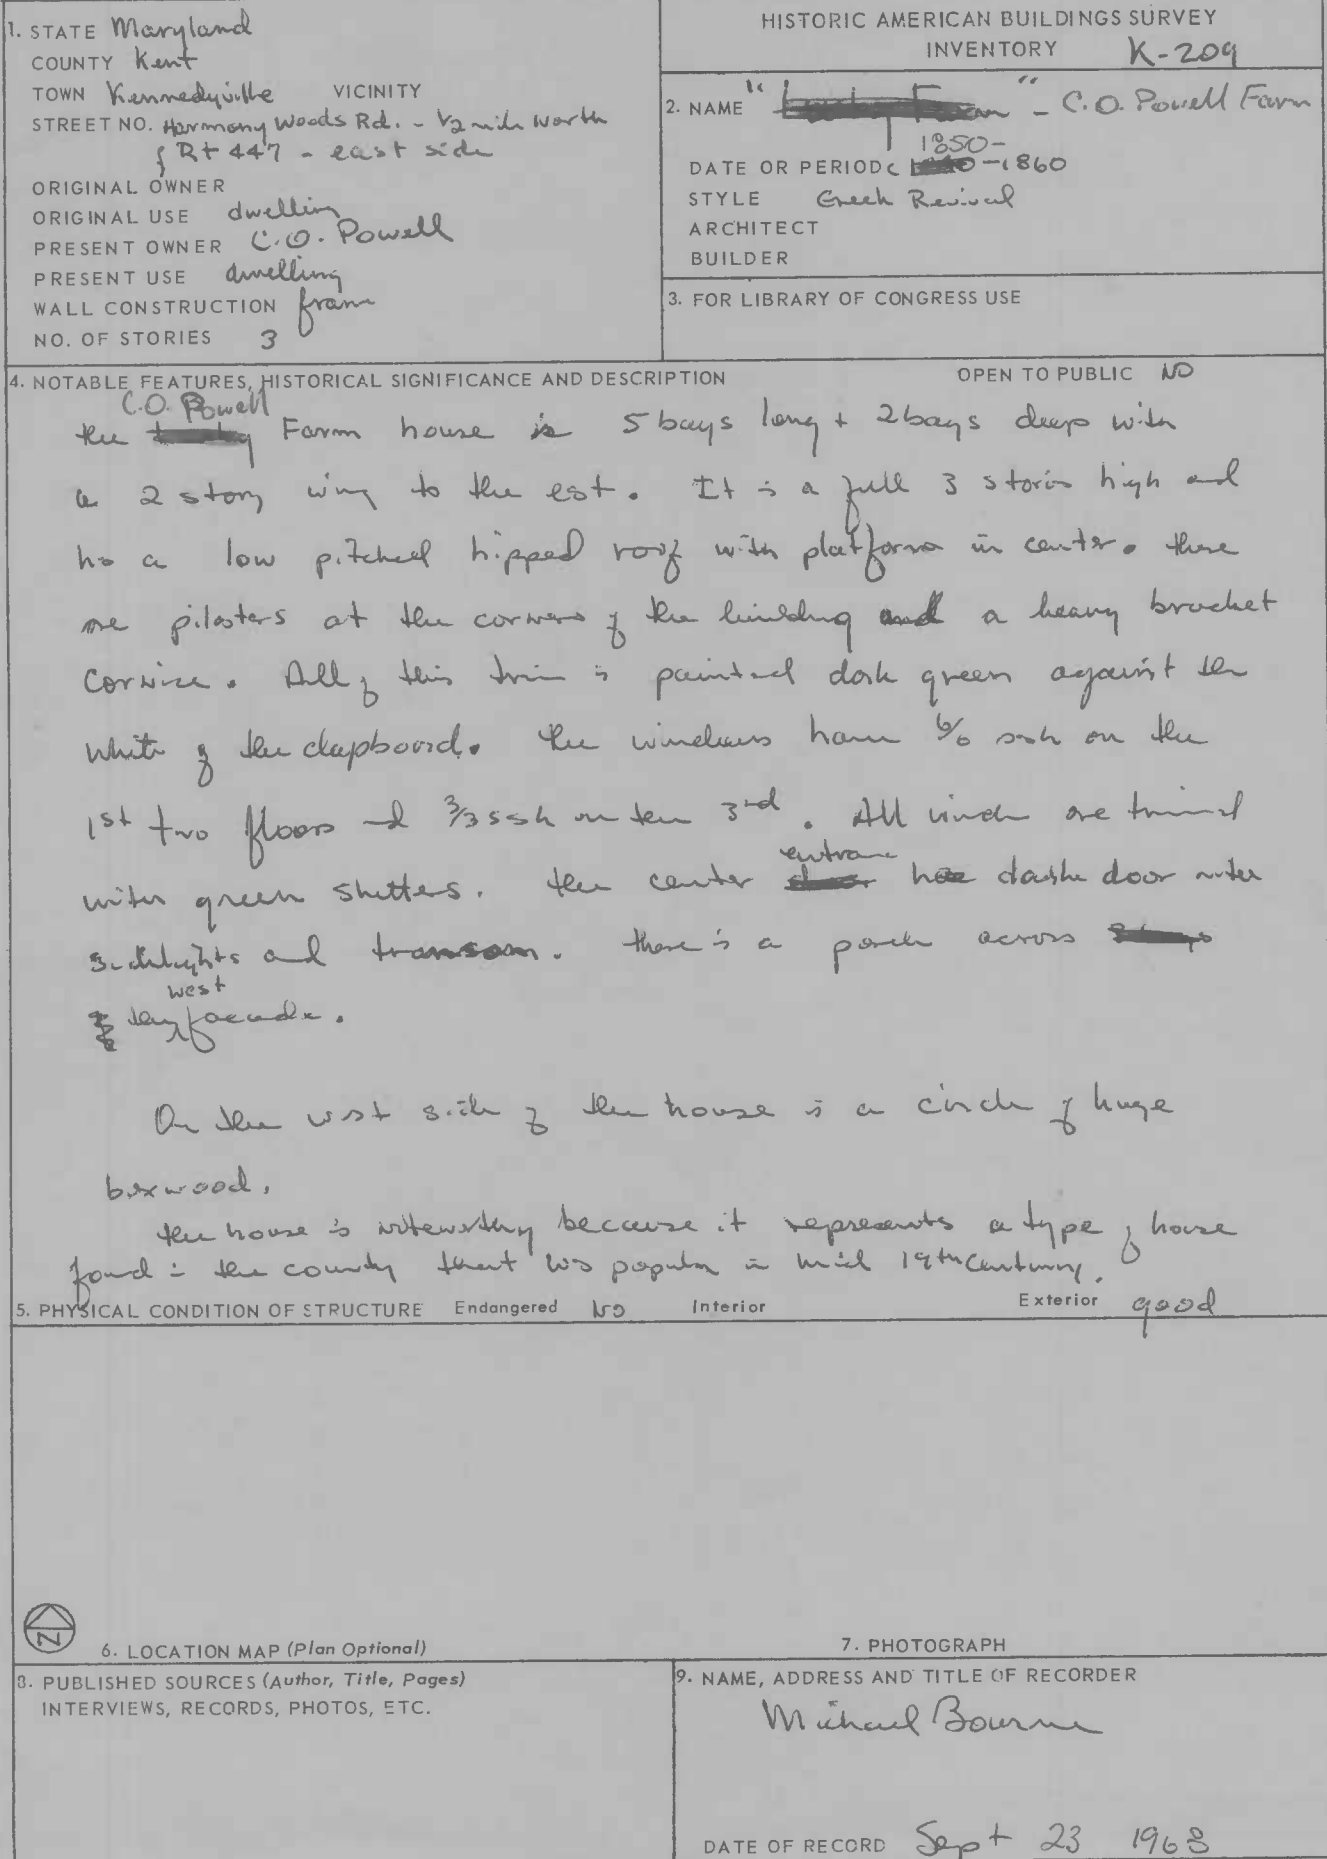 1. STATE Maryland
COUNTY Kent
TOWN Kennedyville VICINITY
STREET NO. Harmony Woods Rd. - 1/2 mile North
of Rt 447 - east side
ORIGINAL OWNER
ORIGINAL USE dwelling
PRESENT OWNER C.O. Powell
PRESENT USE dwelling
WALL CONSTRUCTION frame
NO. OF STORIES 3
HISTORIC AMERICAN BUILDINGS SURVEY
INVENTORY K-209
2. NAME " Farm" - C.O. Powell Farm
1850-
DATE OR PERIOD c -1860
STYLE Greek Revival
ARCHITECT
BUILDER
3. FOR LIBRARY OF CONGRESS USE
4. NOTABLE FEATURES, HISTORICAL SIGNIFICANCE AND DESCRIPTION OPEN TO PUBLIC NO
C.O. Powell
the Farm house is 5 bays long + 2 bays deep with
a 2 story wing to the est. It is a full 3 stories high and
has a low pitched hipped roof with platform in center. there
are pilasters at the corners of the building and a heavy bracket
cornice. All of this trim is painted dark green against the
white of the clapboard. the windows have 6/6 sash on the
1st two floors and 3/3 sash on the 3rd. All windows are trimmed
entrance
with green shutters. the center door has double door with
sidelights and transom. there is a porch across 3 bays
west
of the facade.
On the west side of the house is a circle of huge
boxwood.
the house is noteworthy because it represents a type of house
found in the county that was popular in mid 19th Century.
5. PHYSICAL CONDITION OF STRUCTURE Endangered NO Interior Exterior good
N
6. LOCATION MAP (Plan Optional)
7. PHOTOGRAPH
8. PUBLISHED SOURCES (Author, Title, Pages)
INTERVIEWS, RECORDS, PHOTOS, ETC.
9. NAME, ADDRESS AND TITLE OF RECORDER
Michael Bourne
DATE OF RECORD Sept 23 1968